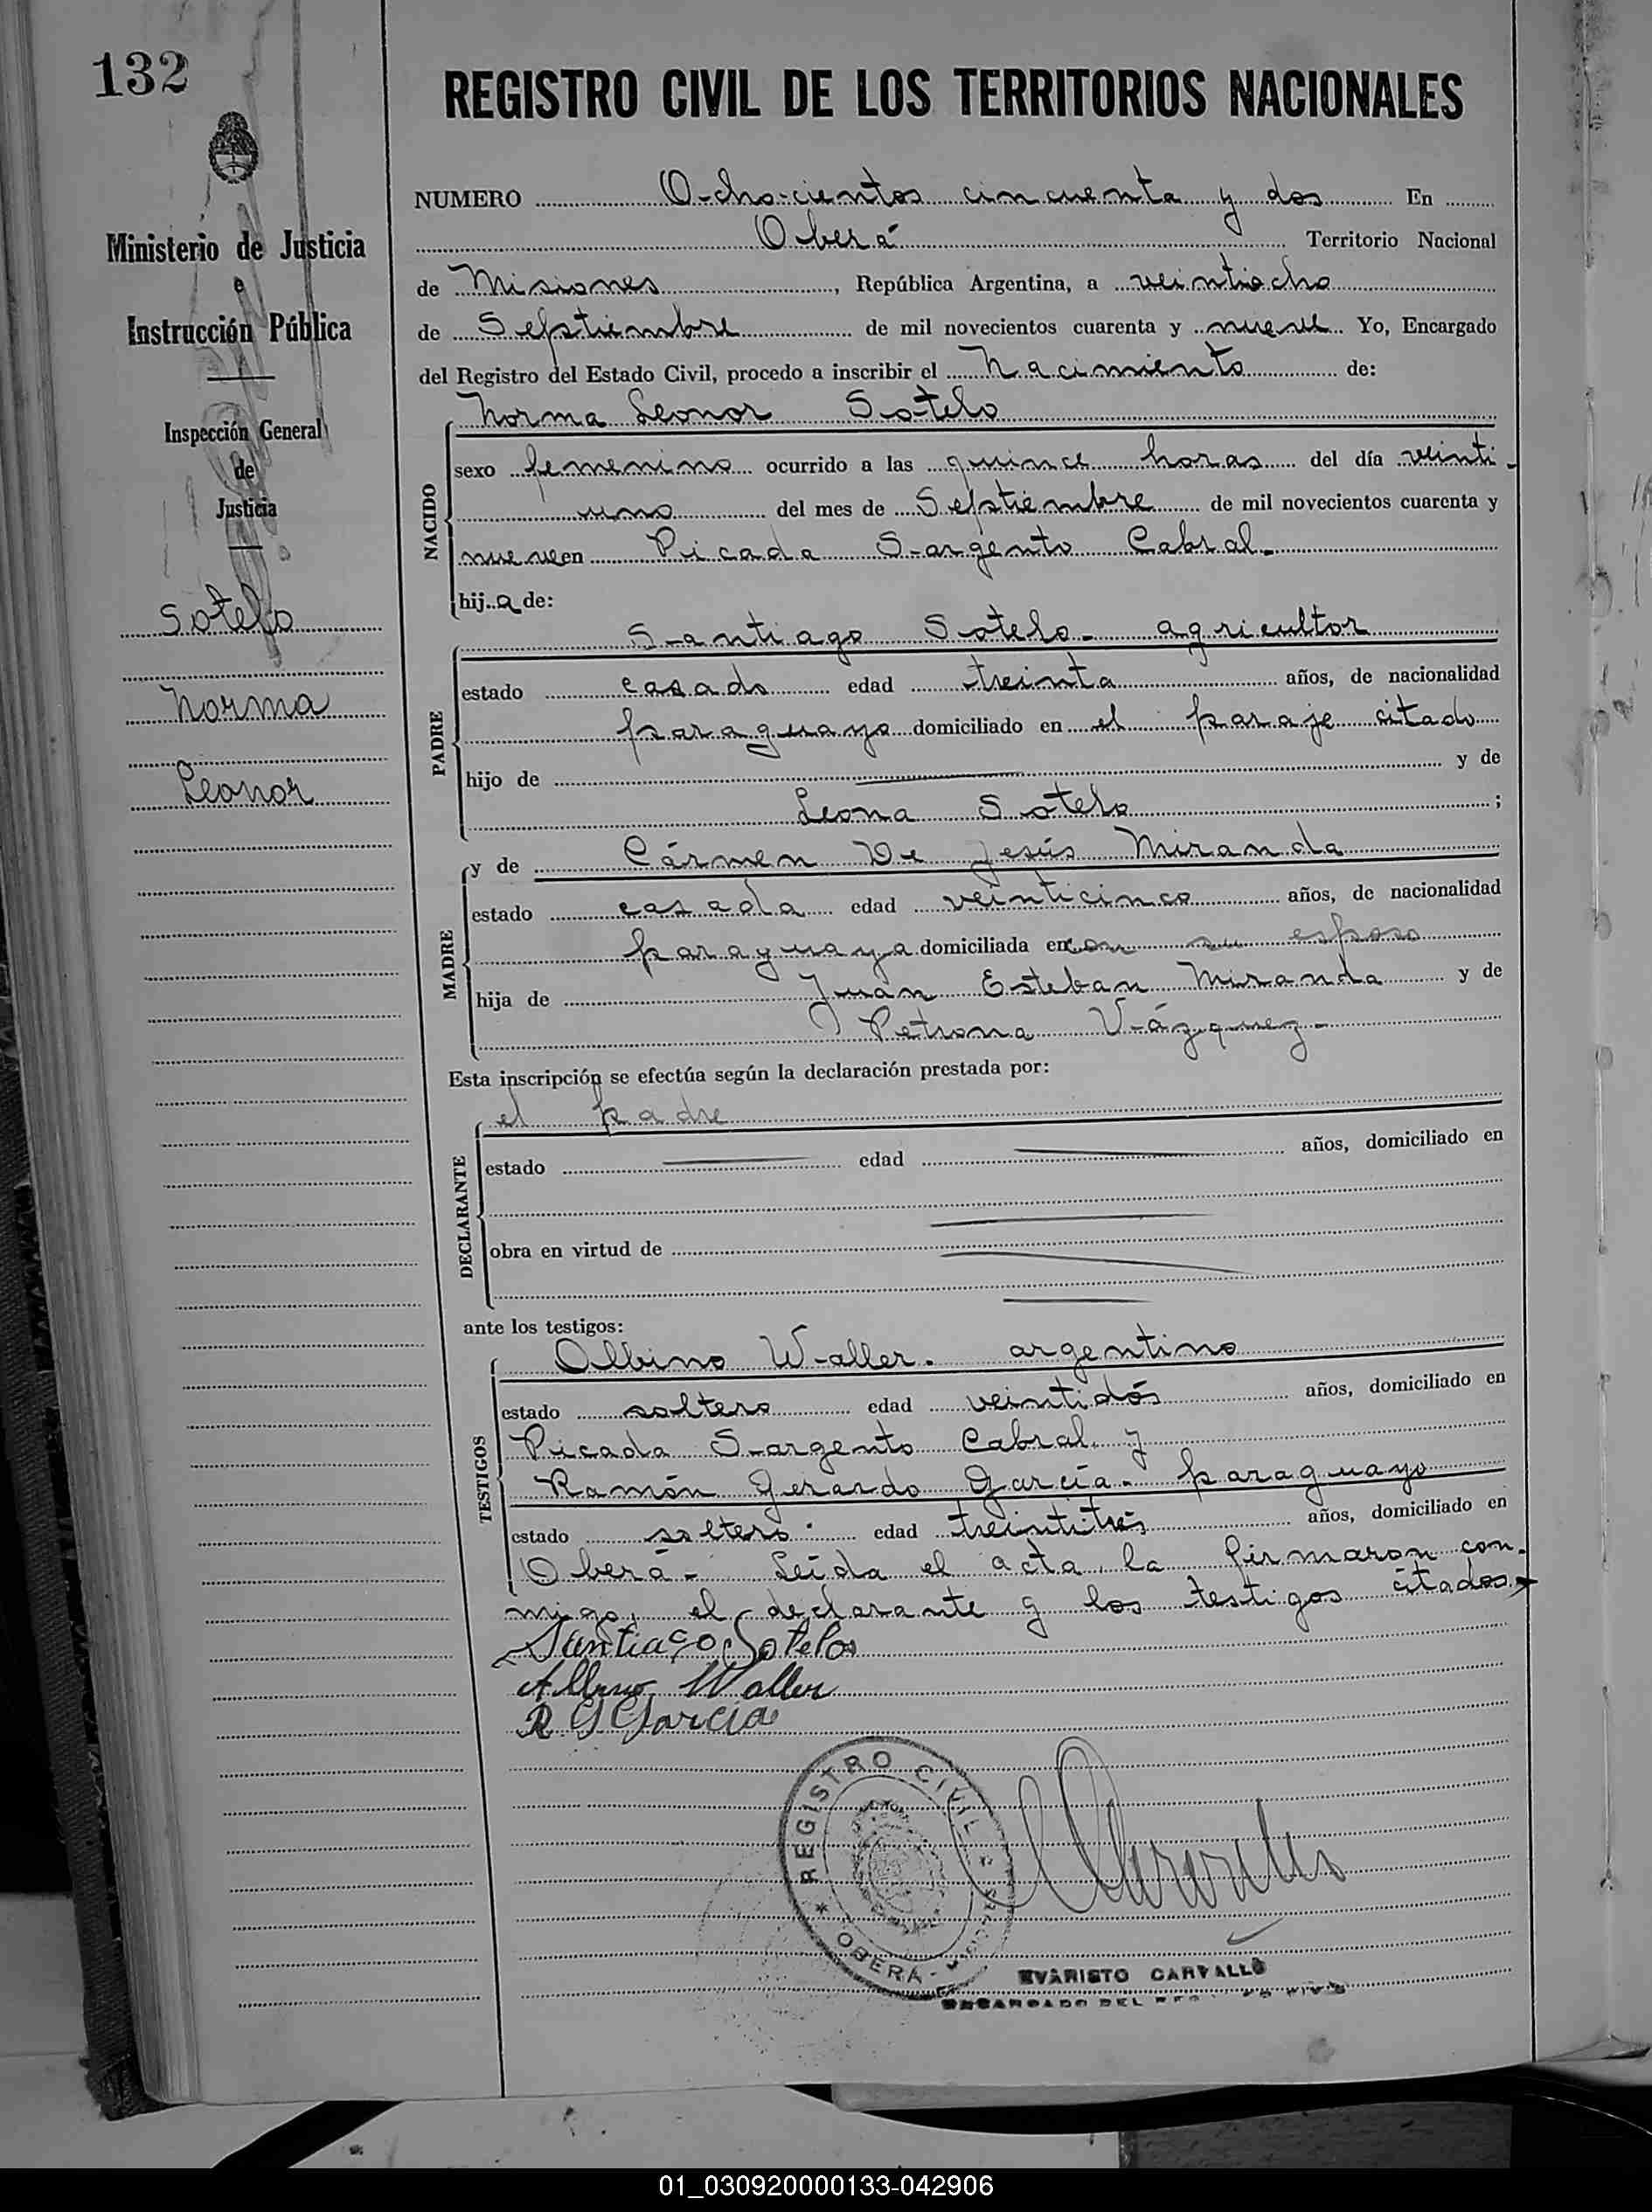 132
REGISTRO CIVIL DE LOS TERRITORIOS NACIONALES
Ministerio de Justicia
e
Instrucción Pública
Inspección General
de
Justicia
Sotelo
Norma
Leonor
NUMERO Ochocientos cincuenta y dos En
Oberá Territorio Nacional
de Misiones, República Argentina, a veintiocho
de Septiembre de mil novecientos cuarenta y nueve Yo, Encargado
del Registro del Estado Civil, procedo a inscribir el Nacimiento de:
Norma Leonor Sotelo
NACIDO
sexo femenino ocurrido a las quince horas del día veinti-
uno del mes de Septiembre de mil novecientos cuarenta y
nueve en Picada Sargento Cabral.
hija de:
Santiago Sotelo- agricultor
PADRE
estado casado edad treinta años, de nacionalidad
paraguayo domiciliado en el paraje citado
hijo de y de
Leona Sotelo ;
y de Cármen De Jesús Miranda
MADRE
estado casada edad veinticinco años, de nacionalidad
paraguaya domiciliada en con su esposo
hija de Juan Esteban Miranda y de
Petrona Vázquez-
Esta inscripción se efectúa según la declaración prestada por:
el padre
DECLARANTE
estado edad años, domiciliado en
obra en virtud de
ante los testigos:
Albino Waller. argentino
TESTIGOS
estado soltero edad veintidós años, domiciliado en
Picada Sargento Cabral. y
Ramón Gerardo García- paraguayo
estado soltero edad treintitrés años, domiciliado en
Oberá- Leída el acta, la firmaron con-
migo, el declarante y los testigos citados
Santiago Sotelo
Albino Waller
R G García
REGISTRO CIVIL
OBERÁ
EVARISTO CARVALLO
ENCARGADO DEL
01_030920000133-042906